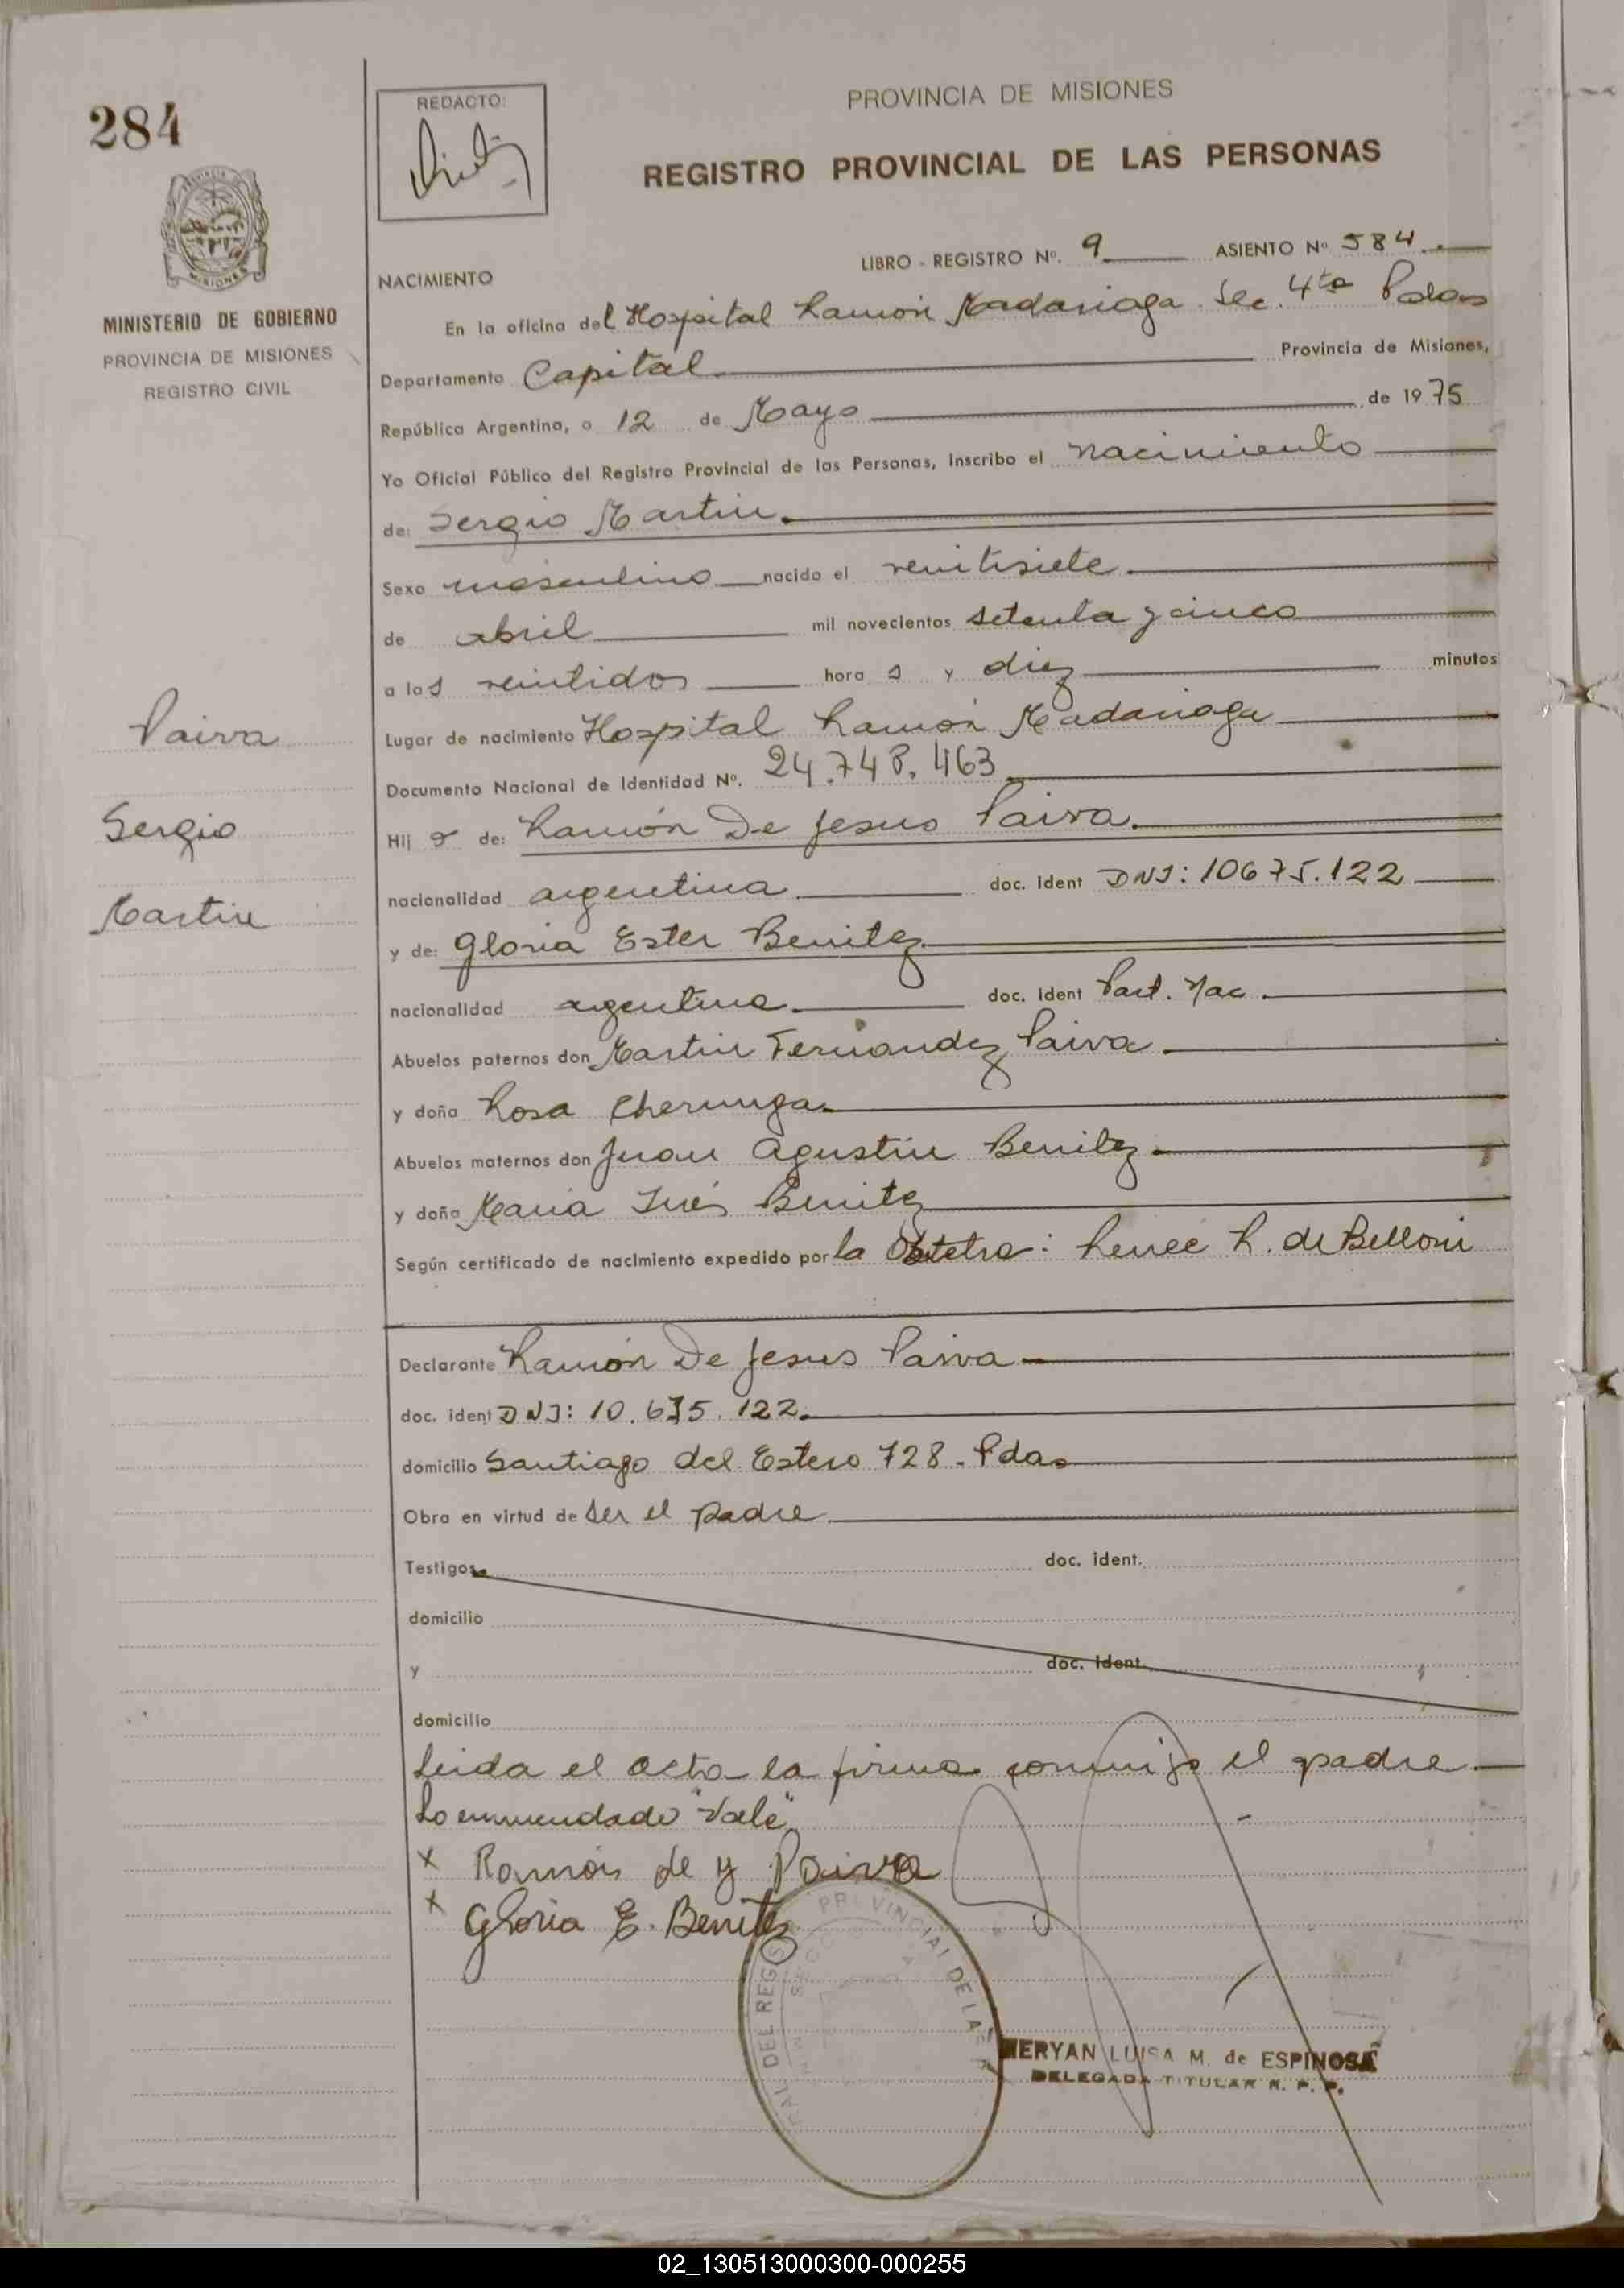 284
REDACTO:
PROVINCIA DE MISIONES
REGISTRO PROVINCIAL DE LAS PERSONAS
MISIONES
MINISTERIO DE GOBIERNO
PROVINCIA DE MISIONES
REGISTRO CIVIL
LIBRO - REGISTRO Nº. 9 ASIENTO Nº 584
NACIMIENTO
En la oficina del Hospital Ramón Madariaga. Sec. 4ta
Departamento Capital Provincia de Misiones,
República Argentina, a 12 de Mayo de 1975
Yo Oficial Público del Registro Provincial de las Personas, inscribo el nacimiento
de: Sergio Martin.
Sexo masculino nacido el veintisiete.
de abril mil novecientos setenta y cinco
a las veintidos hora s y diez minutos
Lugar de nacimiento Hospital Ramón Madariaga
Documento Nacional de Identidad Nº. 24.748.463
Hij o de: Ramón De Jesus Paiva.
nacionalidad argentina doc. ident DNI: 10675.122
y de: Gloria Ester Benitez
nacionalidad argentina. doc. ident Part. Nac.
Abuelos paternos don Martin Fernandez Paiva
y doña Rosa
Abuelos maternos don Juan Agustin Benitez
y doña Maria Inés Benitez
Según certificado de nacimiento expedido por la Obstetra: Reneé R. de Belloni
Paiva
Sergio
Martin
Declarante Ramón De Jesus Paiva
doc. ident DNI: 10.675.122.
domicilio Santiago del Estero 728 - Pdas
Obra en virtud de ser el padre
Testigos doc. ident.
domicilio
y doc. ident.
domicilio
Leida el acta la firma conmigo el padre
Lo enmendado "Vale"
x Ramón de y Paiva
x Gloria E. Benitez
MERYAN LUISA M. de ESPINOSA
DELEGADA TITULAR R. P. P.
02_130513000300-000255